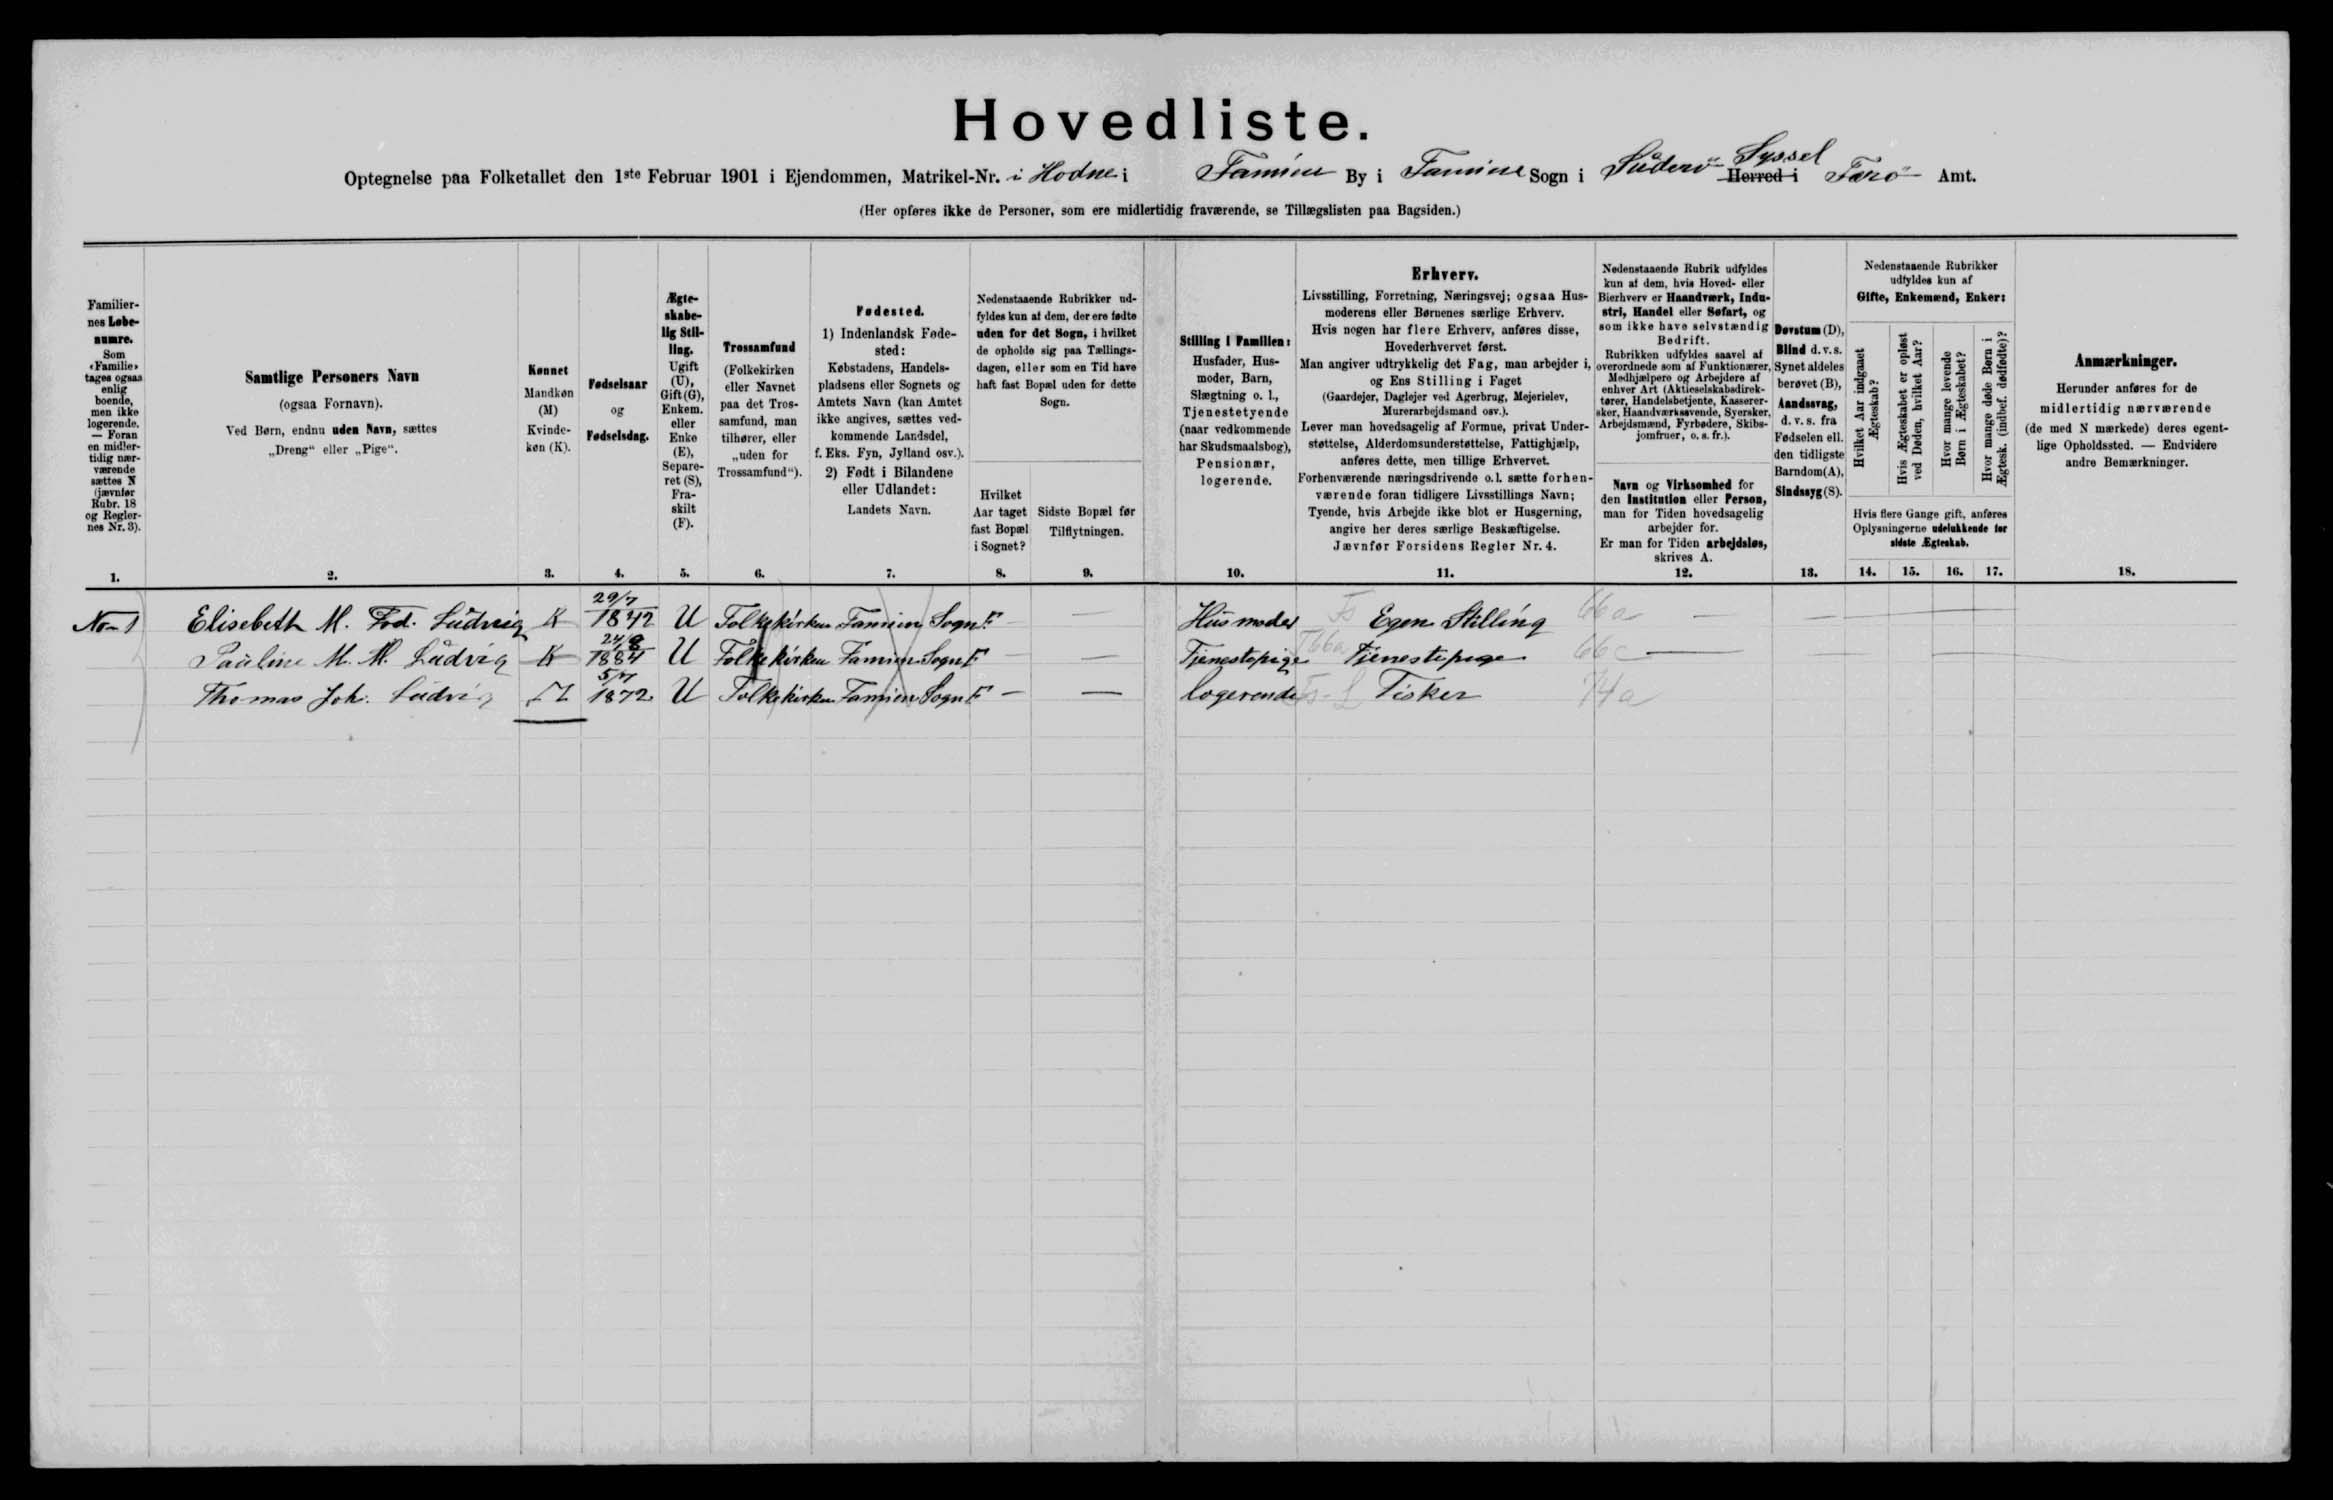 Hovedliste.
Optegnelse paa Folketallet den 1ste Februar 1901 i Ejendommen, Matrikel-Nr. i Hodne i Famien By i Famien Sogn i Süderö Syssel Herred i Færö Amt.
(Her opføres ikke de Personer, som ere midlertidig fraværende, se Tillægslisten paa Bagsiden.)
Familiernes Løbenumre.
Som «Familie» tages ogsaa enlig boende, men ikke logerende. — Foran en midlertidig nærværende sættes N (jævnfør Rubr. 18 og Reglernes Nr. 3).
1.
Samtlige Personers Navn
(ogsaa Fornavn).
Ved Børn, endnu uden Navn, sættes
„Dreng“ eller „Pige“.
2.
Kønnet
Mandkøn (M) Kvindekøn (K).
3.
Fødselsaar
og
Fødselsdag.
4.
Ægteskabelig Stilling.
Ugift (U), Gift (G), Enkem. eller Enke (E), Separeret (S), Fraskilt (F).
5.
Trossamfund
(Folkekirken eller Navnet paa det Trossamfund, man tilhører, eller „uden for Trossamfund“).
6.
Fødested.
1) Indenlandsk Fødested:
Købstadens, Handelspladsens eller Sognets og Amtets Navn (kan Amtet ikke angives, sættes vedkommende Landsdel, f. Eks. Fyn, Jylland osv.).
2) Født i Bilandene eller Udlandet:
Landets Navn.
7.
Nedenstaaende Rubrikker udfyldes kun af dem, der ere fødte uden for det Sogn, i hvilket de opholde sig paa Tællingsdagen, eller som en Tid have haft fast Bopæl uden for dette Sogn.
Hvilket Aar taget fast Bopæl i Sognet?
8.
Sidste Bopæl før Tilflytningen.
9.
Stilling i Familien:
Husfader, Husmoder, Barn, Slægtning o. l., Tjenestetyende (naar vedkommende har Skudsmaalsbog), Pensionær, logerende.
10.
Erhverv.
Livsstilling, Forretning, Næringsvej; ogsaa Husmoderens eller Børnenes særlige Erhverv.
Hvis nogen har flere Erhverv, anføres disse, Hovederhvervet først.
Man angiver udtrykkelig det Fag, man arbejder i, og Ens Stilling i Faget
(Gaardejer, Daglejer ved Agerbrug, Mejerielev, Murerarbejdsmand osv.).
Lever man hovedsagelig af Formue, privat Understøttelse, Alderdomsunderstøttelse, Fattighjælp, anføres dette, men tillige Erhvervet.
Forhenværende næringsdrivende o.l. sætte forhenværende foran tidligere Livsstillings Navn; Tyende, hvis Arbejde ikke blot er Husgerning, angive her deres særlige Beskæftigelse.
Jævnfør Forsidens Regler Nr. 4.
11.
Nedenstaaende Rubrik udfyldes kun af dem, hvis Hoved- eller Bierhverv er Haandværk, Industri, Handel eller Søfart, og som ikke have selvstændig Bedrift.
Rubrikken udfyldes saavel af overordnede som af Funktionærer, Medhjælpere og Arbejdere af enhver Art (Aktieselskabsdirektører, Handelsbetjente, Kasserersker, Haandværkssvende, Syersker, Arbejdsmænd, Fyrbødere, Skibsjomfruer, o. s. fr.).
Navn og Virksomhed for den Institution eller Person, man for Tiden hovedsagelig arbejder for.
Er man for Tiden arbejdsløs, skrives A.
12.
Døvstum (D), Blind d. v. s. Synet aldeles berøvet (B), Aandssvag, d. v. s. fra Fødselen ell. den tidligste Barndom (A), Sindssyg (S).
13.
Nedenstaaende Rubrikker udfyldes kun af
Gifte, Enkemænd, Enker:
Hvilket Aar indgaaet Ægteskab?
Hvis Ægteskabet er opløst ved Døden, hvilket Aar?
Hvor mange levende Børn i Ægteskabet?
Hvor mange døde Børn i Ægtesk. (indbef. dødfødte)?
Hvis flere Gange gift, anføres Oplysningerne udelukkende for sidste Ægteskab.
14. 15. 16. 17.
Anmærkninger.
Herunder anføres for de midlertidig nærværende (de med N mærkede) deres egentlige Opholdssted. — Endvidere andre Bemærkninger.
18.
No 1 Elisebeth M. Fod. Lüdvig K 29/7 1842 U Folkekirken Famien Sogn F. — — Husmoder Fs Egen Stilling 66a — —
Pauline M. M. Lüdvig K 24/8 1884 U Folkekirken Famien Sogn F — — Tjenestepige T66a Tjenestepige 66c — —
Thomas Joh. Lüdvig M 5/7 1872 U Folkekirken Famien Sogn F — — logerende Fs-L Fisker 74a